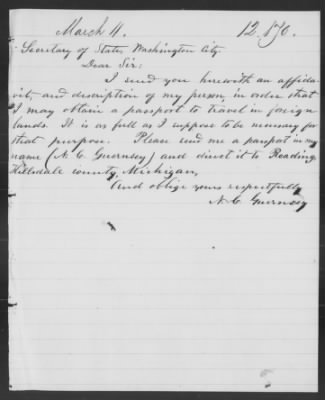 March 11. 12. 1870.
Secretary of State, Washington City.
Dear Sir:
I send you herewith an affida-
vit, and description of my person, in order that
I may obtain a passport to travel in foreign
lands. It is as full as I suppose to be necessary for
that purpose. Please send me a passport in my
name (N. C. Guernsey) and direct it to Reading
Hillsdale county, Michigan,
And oblige yours respectfully
N. C. Guernsey